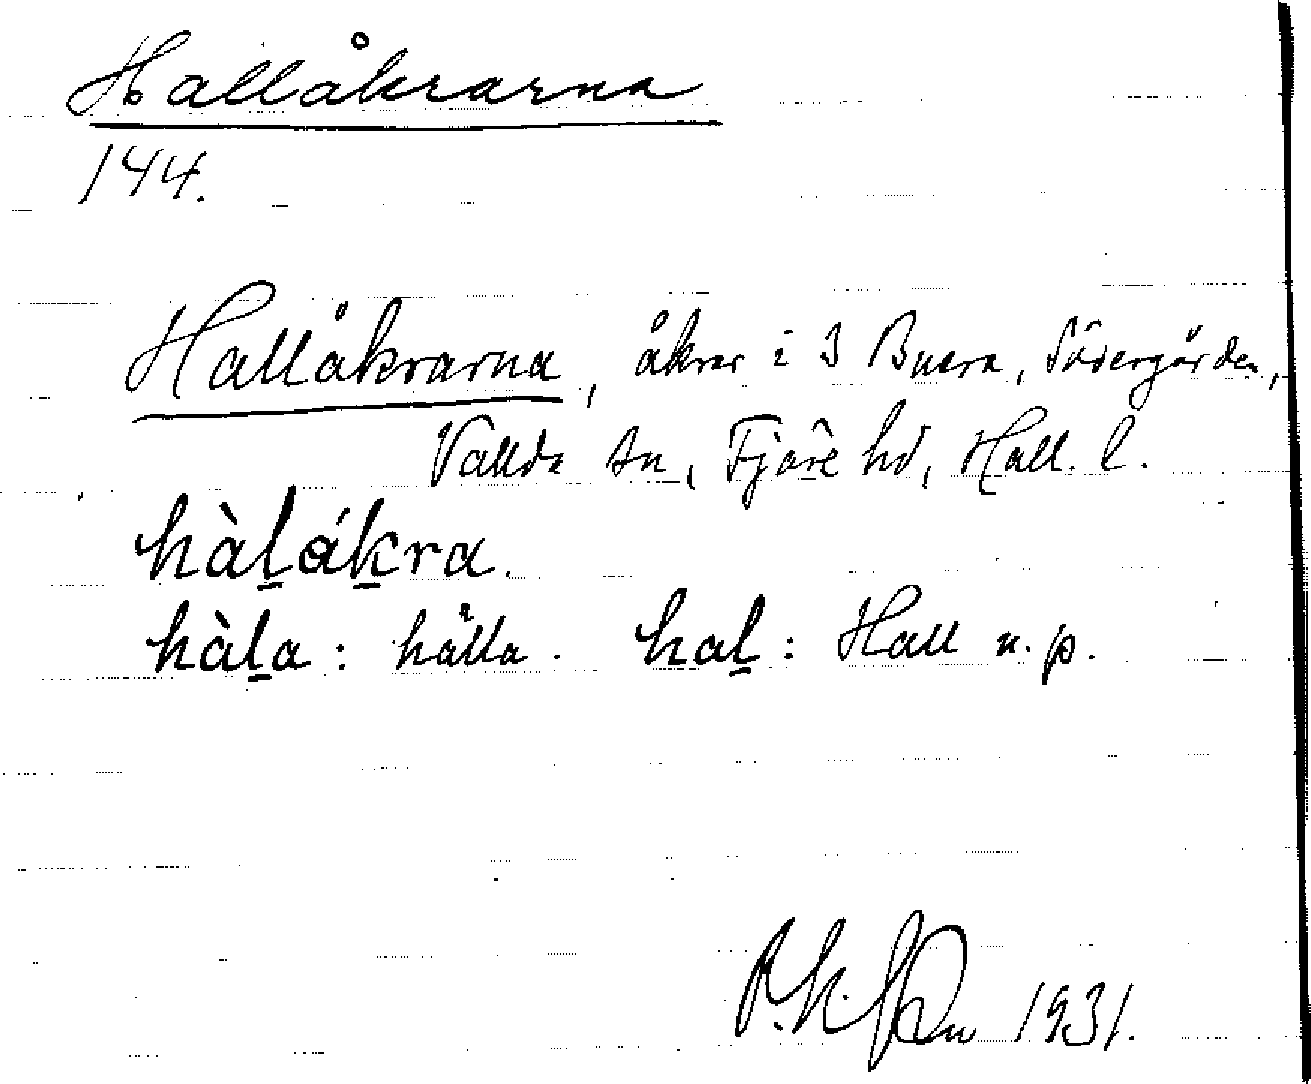 Hallåkrarna
144.
Hallåkrarna, åkrar i 3 Buera, Södergården,
Vallda sn, Fjäre hd, Hall. l.
hàl̠ák̠ra.
hàl̠a: hålla. hal̠: Hall n.p.
1931.